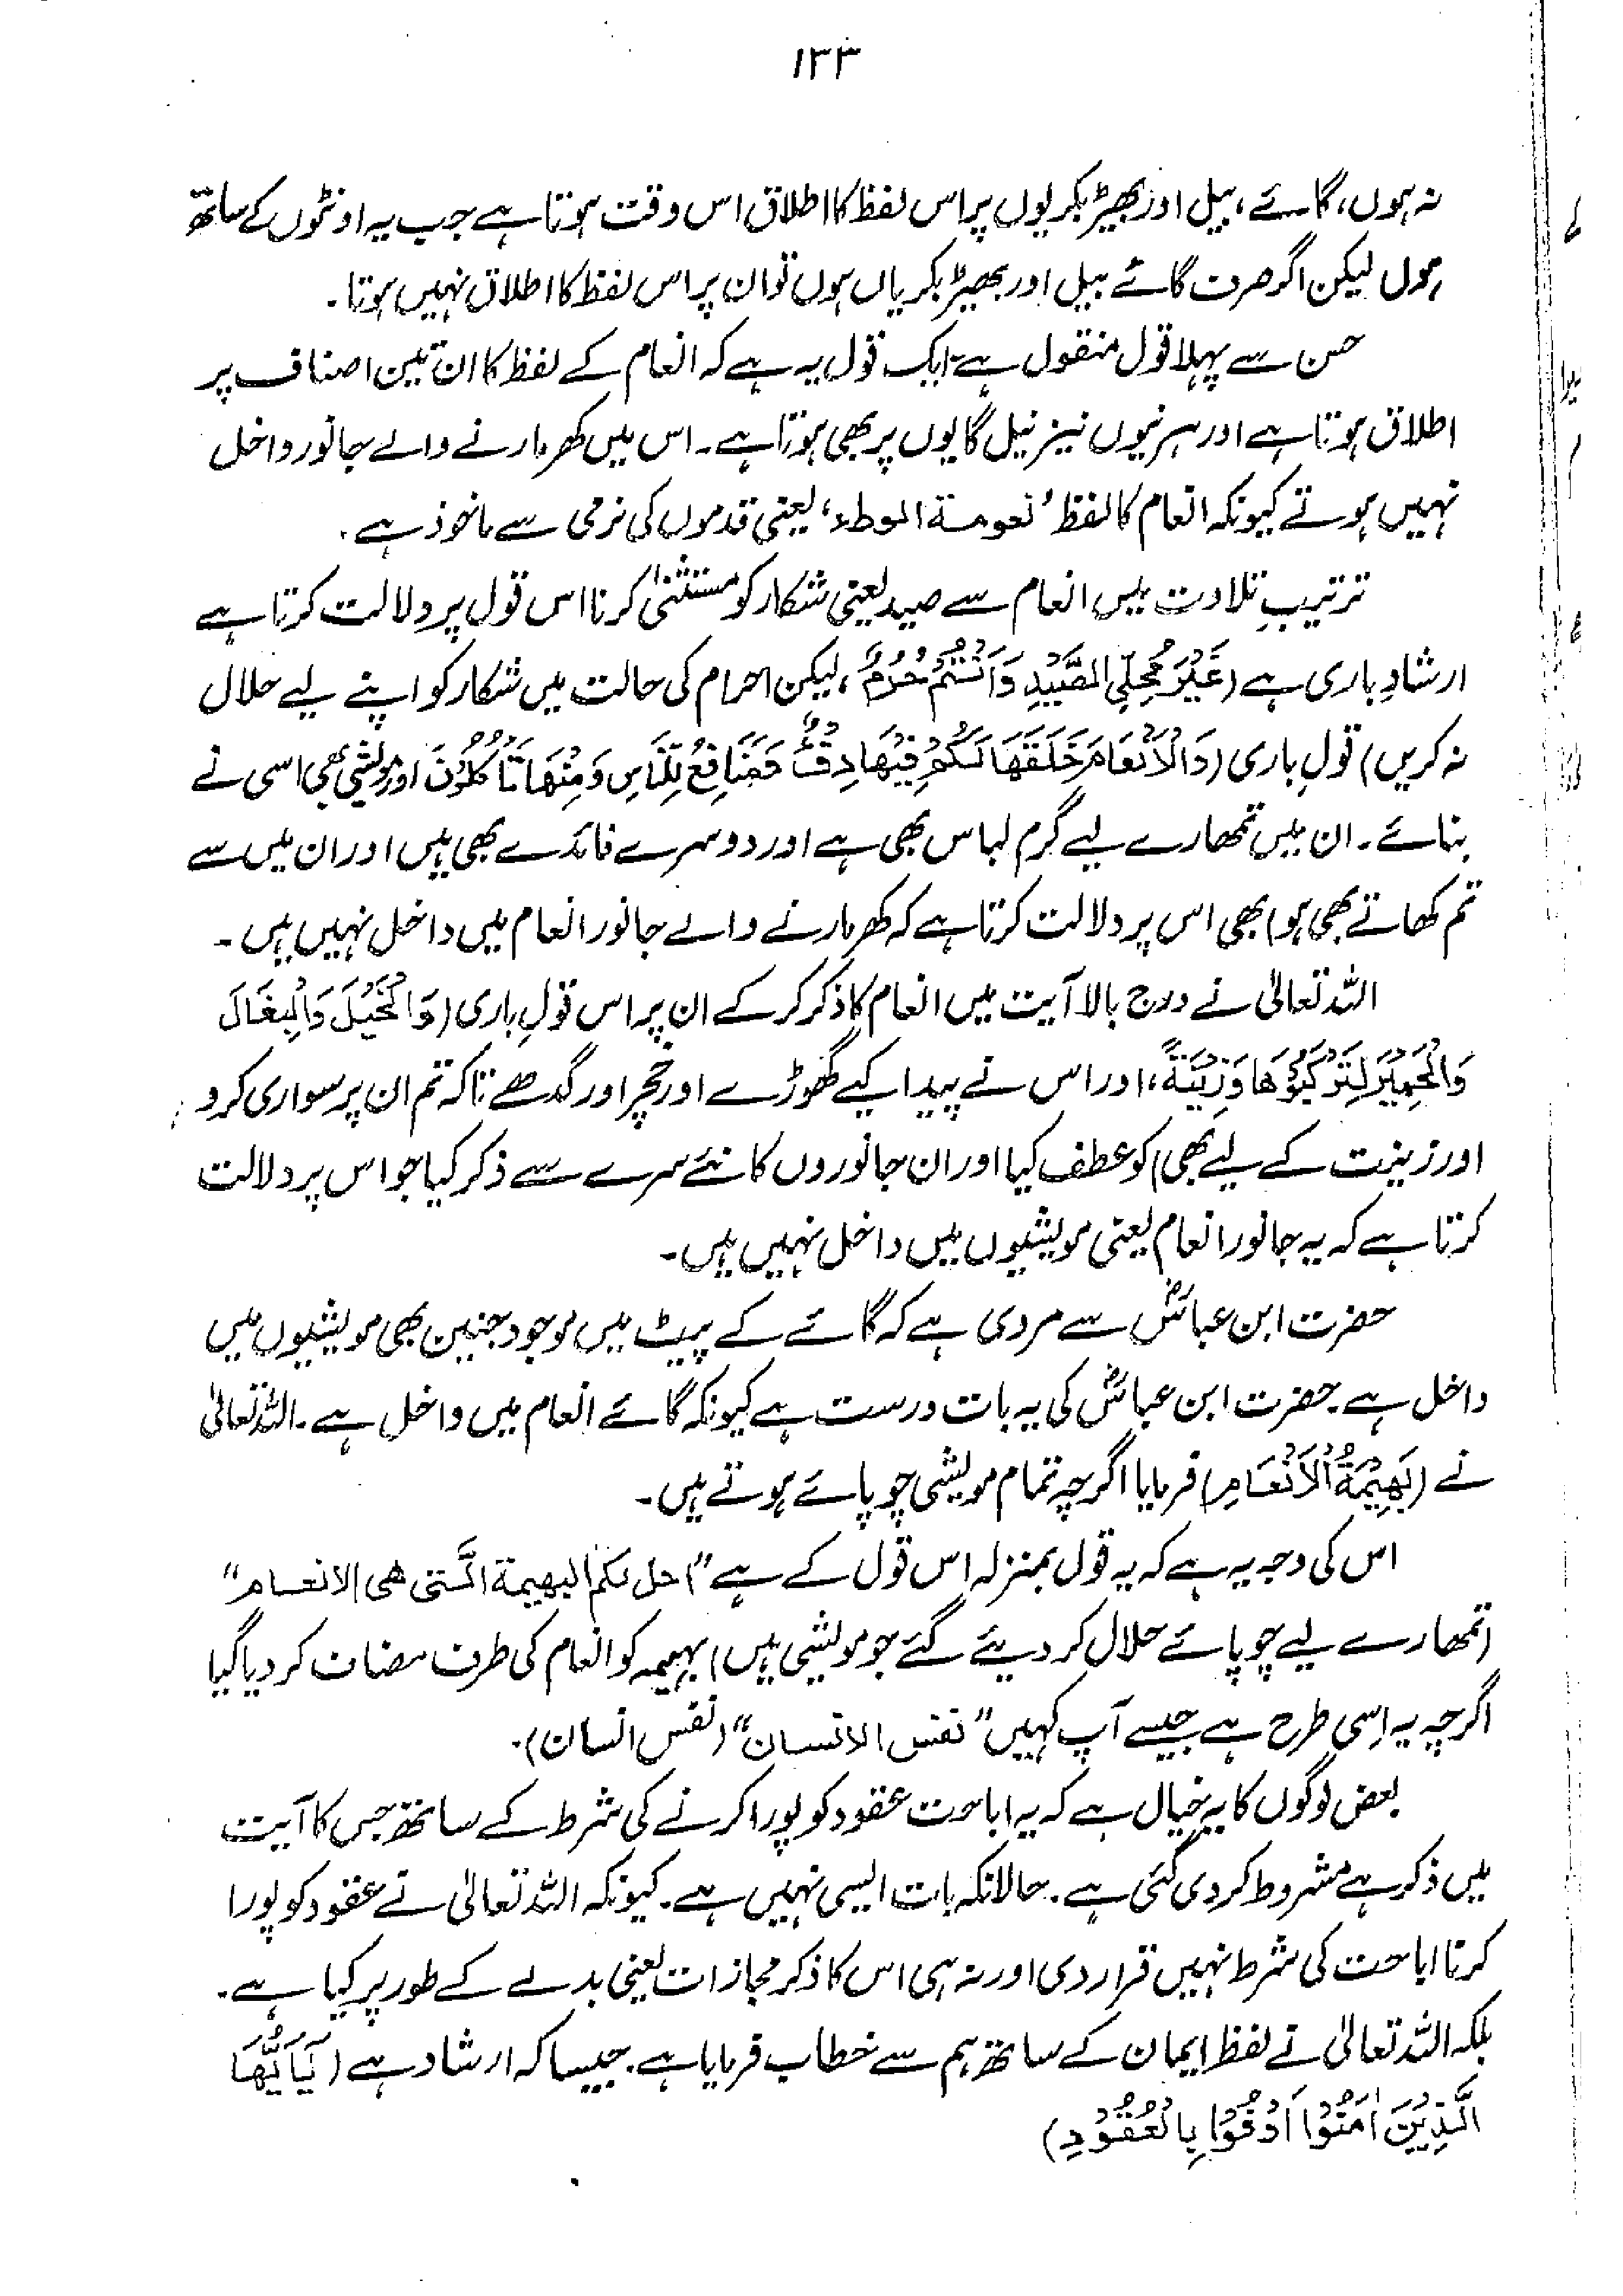 ۱۳۳
نہ ہوں، گائے، بیل اور بھیڑ بکریوں پر اس لفظ کا اطلاق اس وقت ہوتا ہے جب یہ اونٹوں کے ساتھ
ہوں لیکن اگر صرف گائے بیل اور بھیڑ بکریاں ہوں تو ان پر اس لفظ کا اطلاق نہیں ہوتا۔
حسن سے پہلا قول منقول ہے ایک قول یہ ہے کہ انعام کے لفظ کا ان تین اصناف پر
اطلاق ہوتا ہے اور ہرنیوں نیز نیل گایوں پر بھی ہوتا ہے۔ اس میں کھر مارنے والے جانور داخل
نہیں ہوتے کیونکہ انعام کا لفظ 'نعومۃ الوطء' یعنی قدموں کی نرمی سے ماخوذ ہے۔
ترتیبِ تلاوت میں انعام سے صید یعنی شکار کو مستثنیٰ کرنا اس قول پر دلالت کرتا ہے
ارشادِ باری ہے (غَیْرَ مُحِلِّی الصَّیْدِ وَاَنْتُمْ حُرُمٌ، لیکن احرام کی حالت میں شکار کو اپنے لیے حلال
نہ کریں) قولِ باری (وَالْاَنْعَامَ خَلَقَهَا لَكُمْ فِیْهَا دِفْءٌ وَّمَنَافِعُ لِلنَّاسِ وَمِنْهَا تَاْكُلُوْنَ اور مویشی بھی اسی نے
بنائے۔ ان میں تمھارے لیے گرم لباس بھی ہے اور دوسرے فائدے بھی ہیں اور ان میں سے
تم کھاتے بھی ہو) بھی اس پر دلالت کرتا ہے کہ کھر مارنے والے جانور انعام میں داخل نہیں ہیں۔
اللہ تعالیٰ نے درج بالا آیت میں انعام کا ذکر کر کے ان پر اس قولِ باری (وَالْخَیْلَ وَالْبِغَالَ
وَالْحَمِیْرَ لِتَرْكَبُوْهَا وَزِیْنَةً، اور اس نے پیدا کیے گھوڑے اور خچر اور گدھے تاکہ تم ان پر سواری کرو
اور زینت کے لیے بھی) کو عطف کیا اور ان جانوروں کا نئے سرے سے ذکر کیا جو اس پر دلالت
کرتا ہے کہ یہ جانور انعام یعنی مویشیوں میں داخل نہیں ہیں۔
حضرت ابن عباسؓ سے مروی ہے کہ گائے کے پیٹ میں موجود جنین بھی مویشیوں میں
داخل ہے۔ حضرت ابن عباسؓ کی یہ بات درست ہے کیونکہ گائے انعام میں داخل ہے۔ اللہ تعالیٰ
نے (بَهِیْمَةُ الْاَنْعَامِ) فرمایا اگرچہ تمام مویشی چوپائے ہوتے ہیں۔
اس کی وجہ یہ ہے کہ یہ قول بمنزلہ اس قول کے ہے "احل لکم البھیمۃ الَّتی ھی الانعام"
(تمھارے لیے چوپائے حلال کر دیئے گئے جو مویشی ہیں) بہیمہ کو انعام کی طرف مضاف کر دیا گیا
اگرچہ یہ اِسی طرح ہے جیسے آپ کہیں "نفس الانسان" (نفس انسان)۔
بعض لوگوں کا یہ خیال ہے کہ یہ اباحت عقود کو پورا کرنے کی شرط کے ساتھ جس کا آیت
میں ذکر ہے مشروط کر دی گئی ہے۔ حالانکہ بات ایسی نہیں ہے۔ کیونکہ اللہ تعالیٰ نے عقود کو پورا
کرنا اباحت کی شرط نہیں قرار دی اور نہ ہی اس کا ذکر مجازات یعنی بدلے کے طور پر کیا ہے۔
بلکہ اللہ تعالیٰ نے لفظ ایمان کے ساتھ ہم سے خطاب فرمایا ہے۔ جیسا کہ ارشاد ہے (یٰٓاَیُّهَا
الَّذِیْنَ اٰمَنُوْا اَوْفُوْا بِالْعُقُوْدِ)